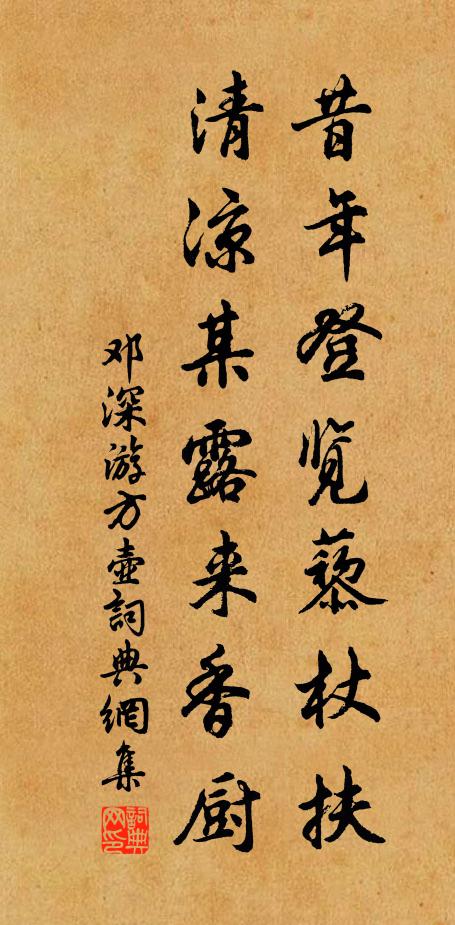 昔年登览藜杖扶
清凉某露来香厨
邓深游方壶詞典網集
詞典网印